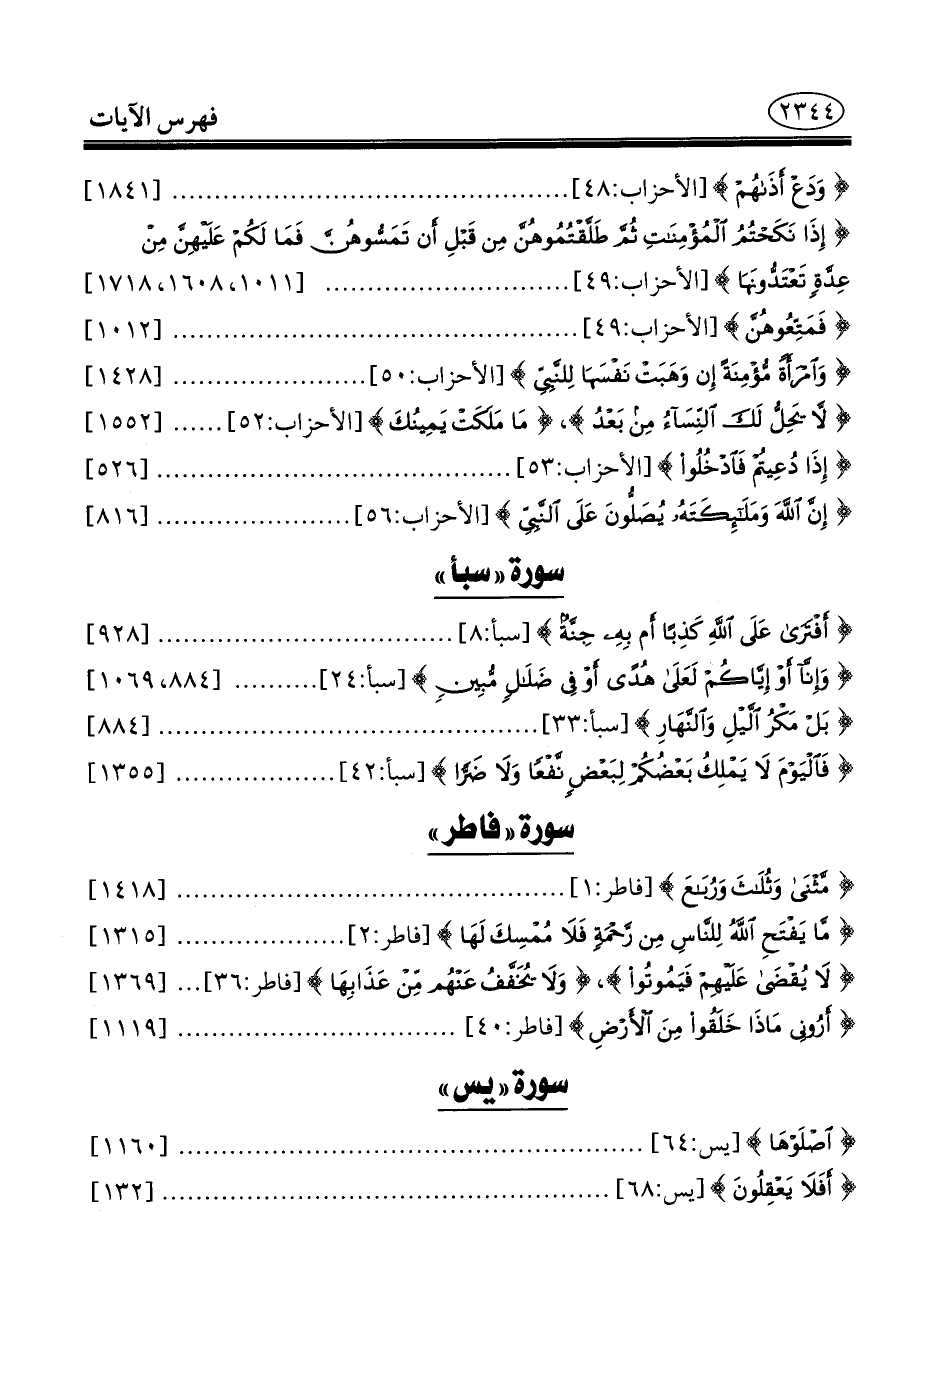 ٢٣٤٤ فهرس الآيات
﴿ وَدَعْ أَذَىٰهُمْ ﴾ [الأحزاب:٤٨] ............................................. [١٨٤١]
﴿ إِذَا نَكَحْتُمُ ٱلْمُؤْمِنَٰتِ ثُمَّ طَلَّقْتُمُوهُنَّ مِن قَبْلِ أَن تَمَسُّوهُنَّ فَمَا لَكُمْ عَلَيْهِنَّ مِنْ
عِدَّةٍ تَعْتَدُّونَهَا ﴾ [الأحزاب:٤٩] ............................ [١٠١١، ١٦٠٨، ١٧١٨]
﴿ فَمَتِّعُوهُنَّ ﴾ [الأحزاب:٤٩] ............................................... [١٠١٢]
﴿ وَٱمْرَأَةً مُّؤْمِنَةً إِن وَهَبَتْ نَفْسَهَا لِلنَّبِيِّ ﴾ [الأحزاب:٥٠] ...................... [١٤٢٨]
﴿ لَّا يَحِلُّ لَكَ ٱلنِّسَآءُ مِنۢ بَعْدُ ﴾، ﴿ مَا مَلَكَتْ يَمِينُكَ ﴾ [الأحزاب:٥٢] ...... [١٥٥٢]
﴿ إِذَا دُعِيتُمْ فَٱدْخُلُوا۟ ﴾ [الأحزاب:٥٣] ......................................... [٥٢٦]
﴿ إِنَّ ٱللَّهَ وَمَلَٰٓئِكَتَهُۥ يُصَلُّونَ عَلَى ٱلنَّبِيِّ ﴾ [الأحزاب:٥٦] ...................... [٨١٦]
سورة «سبأ»
﴿ أَفْتَرَىٰ عَلَى ٱللَّهِ كَذِبًا أَم بِهِۦ جِنَّةٌۢ ﴾ [سبأ:٨] .................................. [٩٢٨]
﴿ وَإِنَّآ أَوْ إِيَّاكُمْ لَعَلَىٰ هُدًى أَوْ فِى ضَلَٰلٍ مُّبِينٍ ﴾ [سبأ:٢٤] .......... [٨٨٤، ١٠٦٩]
﴿ بَلْ مَكْرُ ٱلَّيْلِ وَٱلنَّهَارِ ﴾ [سبأ:٣٣] ........................................... [٨٨٤]
﴿ فَٱلْيَوْمَ لَا يَمْلِكُ بَعْضُكُمْ لِبَعْضٍ نَّفْعًا وَلَا ضَرًّا ﴾ [سبأ:٤٢] .................. [١٣٥٥]
سورة «فاطر»
﴿ مَّثْنَىٰ وَثُلَٰثَ وَرُبَٰعَ ﴾ [فاطر:١] ............................................. [١٤١٨]
﴿ مَّا يَفْتَحِ ٱللَّهُ لِلنَّاسِ مِن رَّحْمَةٍ فَلَا مُمْسِكَ لَهَا ﴾ [فاطر:٢] ................... [١٣١٥]
﴿ لَا يُقْضَىٰ عَلَيْهِمْ فَيَمُوتُوا۟ ﴾، ﴿ وَلَا يُخَفَّفُ عَنْهُم مِّنْ عَذَابِهَا ﴾ [فاطر:٣٦] ... [١٣٦٩]
﴿ أَرُونِى مَاذَا خَلَقُوا۟ مِنَ ٱلْأَرْضِ ﴾ [فاطر:٤٠] ................................ [١١١٩]
سورة «يس»
﴿ ٱصْلَوْهَا ﴾ [يس:٦٤] ...................................................... [١١٦٠]
﴿ أَفَلَا يَعْقِلُونَ ﴾ [يس:٦٨] .................................................... [١٣٢]